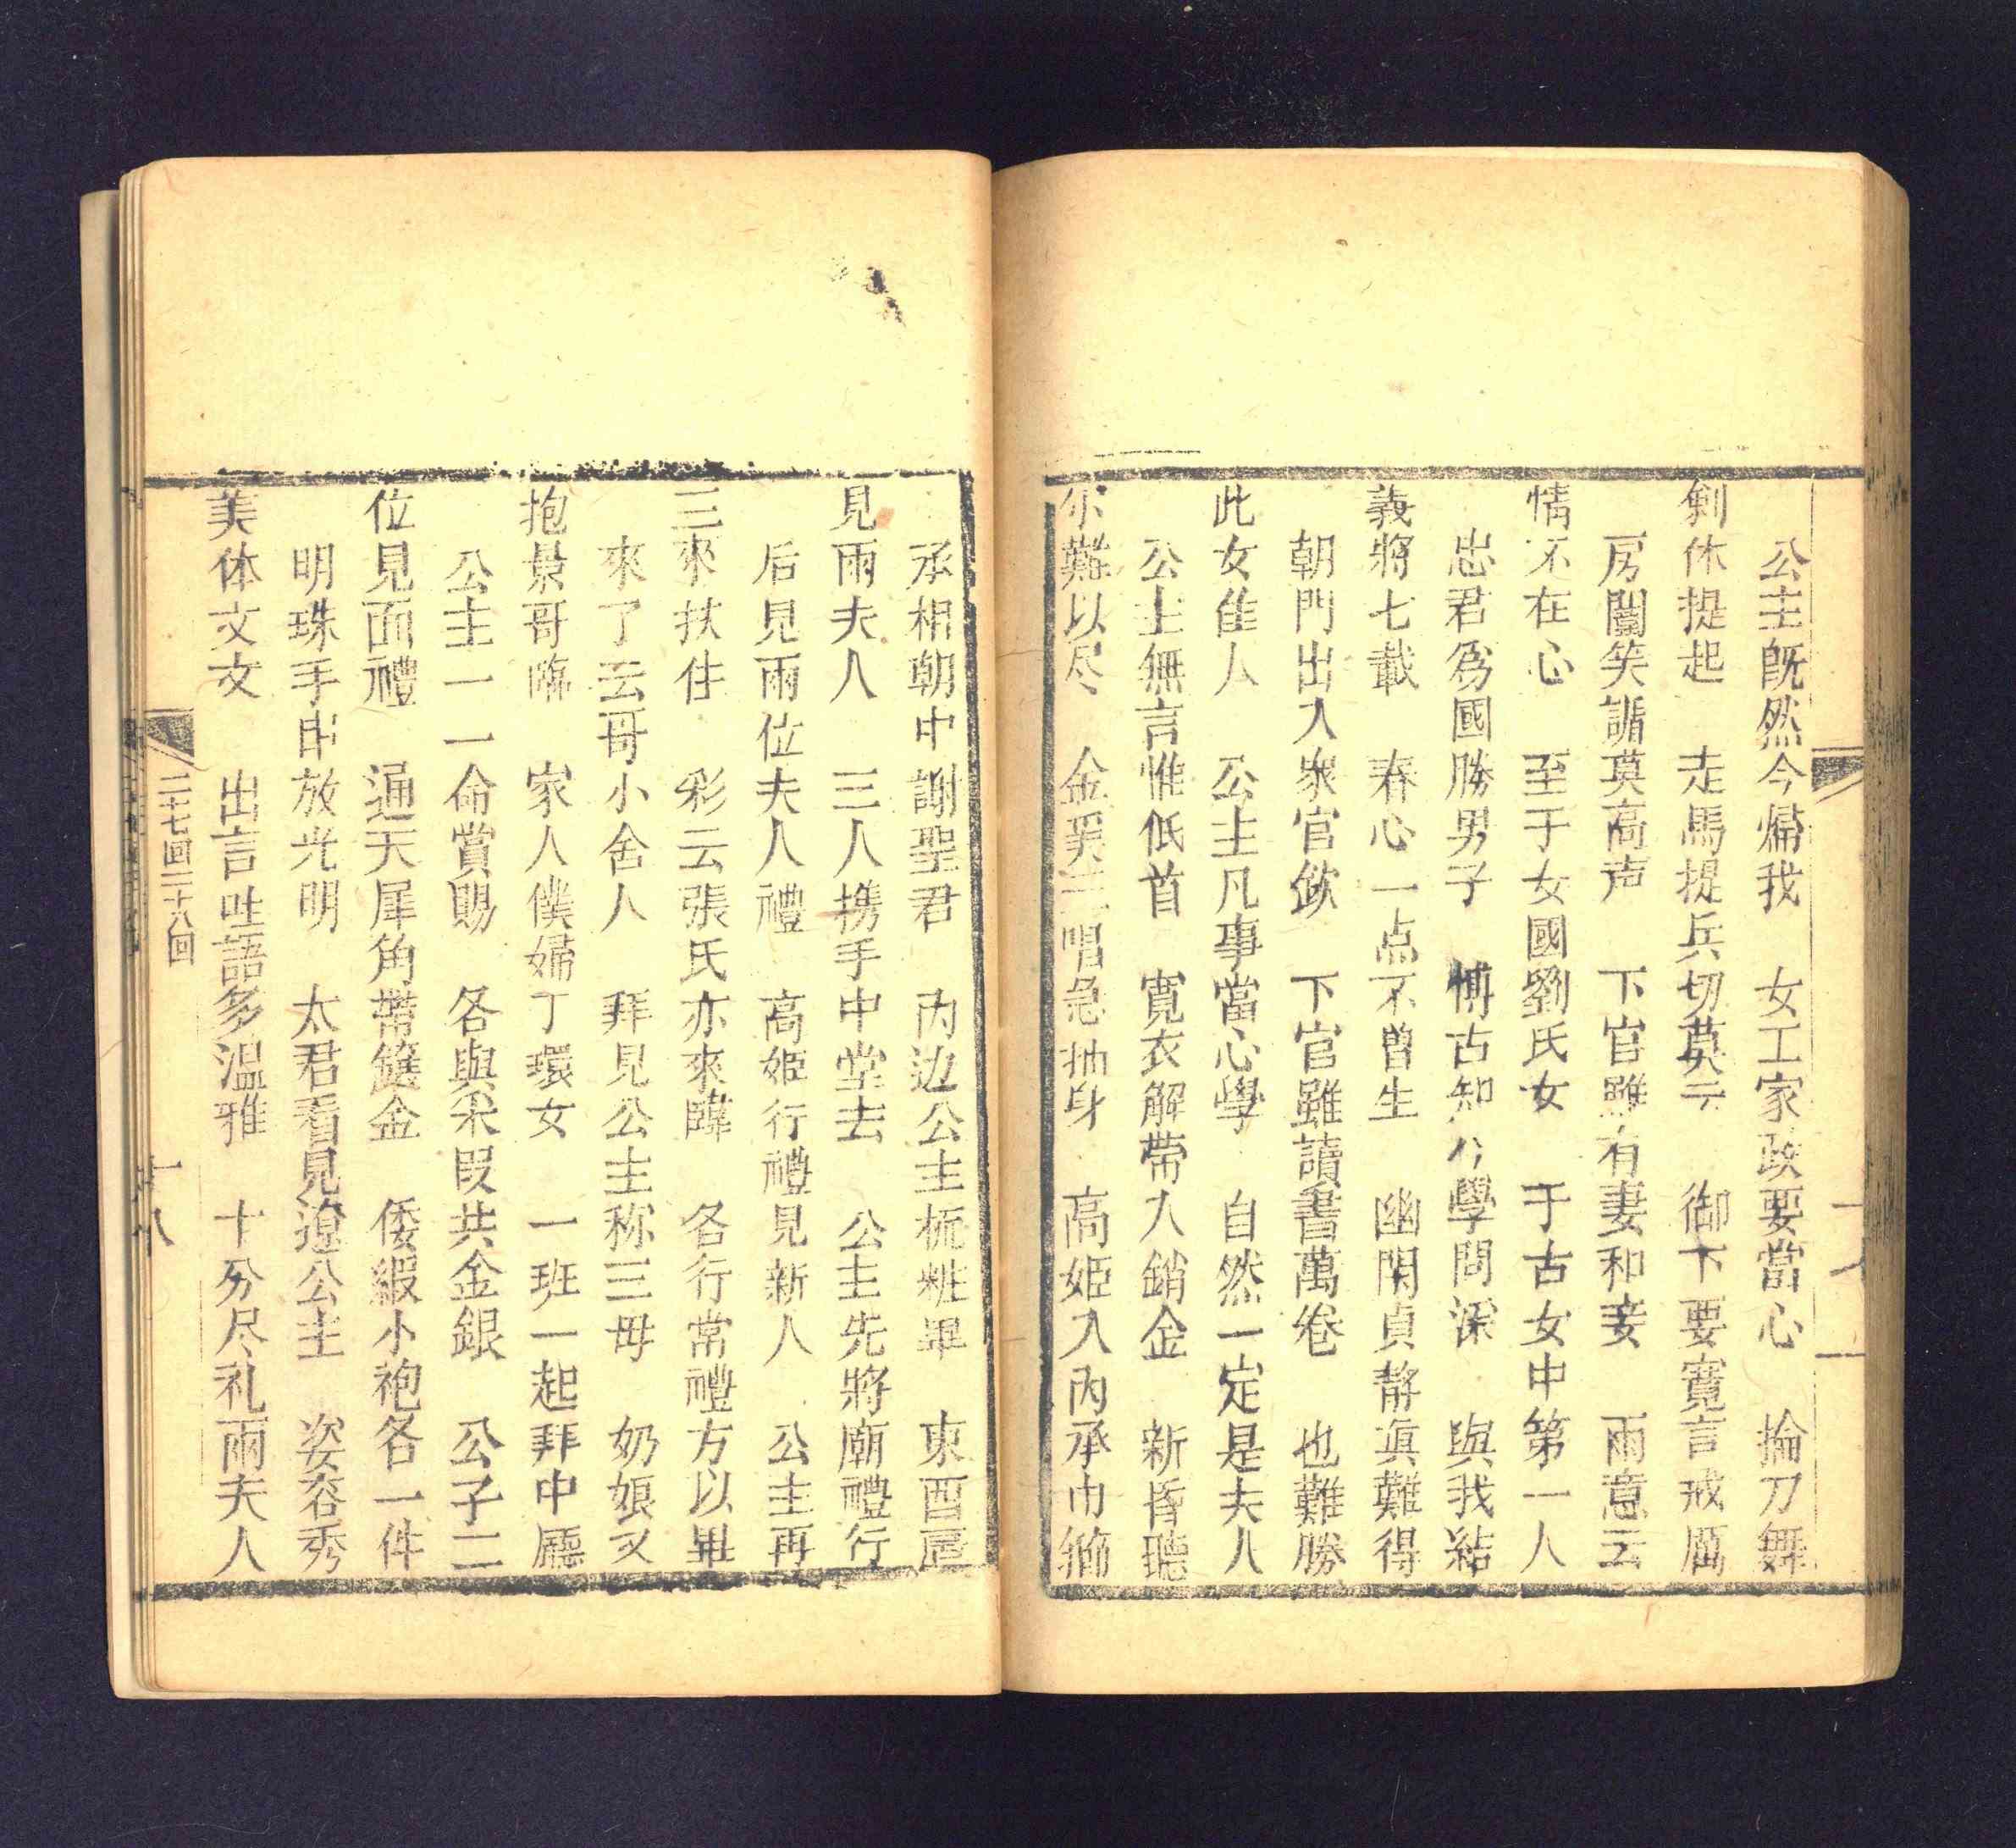 公主既然今歸我　女工家政要當心　掄刀舞
劍休提起　走馬提兵切莫云　御下要寬言戒厲
房闈笑謔莫高声　下官雖有妻和妾　兩意云
情不在心　至于女國劉氏女　于古女中第一人
忠君為國勝男子　博古知今學問深　與我結
義將七載　春心一点不曾生　幽閑貞静真難得
朝門出入衆官欽　下官雖讀書萬卷　也難勝
此女佳人　公主凡事當心學　自然一定是夫人
公主無言惟低首　寛衣解帶入銷金　新昏聽
難以尽　金鷄三唱急抽身　高姬入內承巾
承相朝中謝聖君　內边公主梳粧畢　東酉
見兩夫人　三人携手中堂去　公主先將廟禮行
后見兩位夫人禮　高姬行禮見新人　公主再
三來扶住　彩云張氏亦來　各行常禮方以畢
來了云哥小舍人　拜見公主称三毋　奶娘又
抱景哥　家人僕婦丁環女　一班一起拜中廳
公主一一命賞賜　各與采叚共金銀　公子二
位見面禮　通天犀角帶鑲金　倭緞小袍各一件
明珠手串放光明　太君看見這公主　姿容秀
美体文文　出言吐語多溫雅　十分尽礼兩夫人
二十七回二十八回
十八